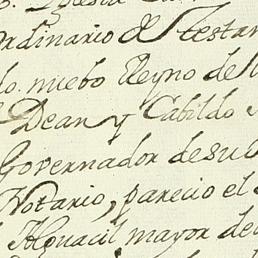 Ordinario de testam
do. nuebo Reyno de
Dean y Cabildo
Governador de su
Notario, parecio el
Alguacil mayor de